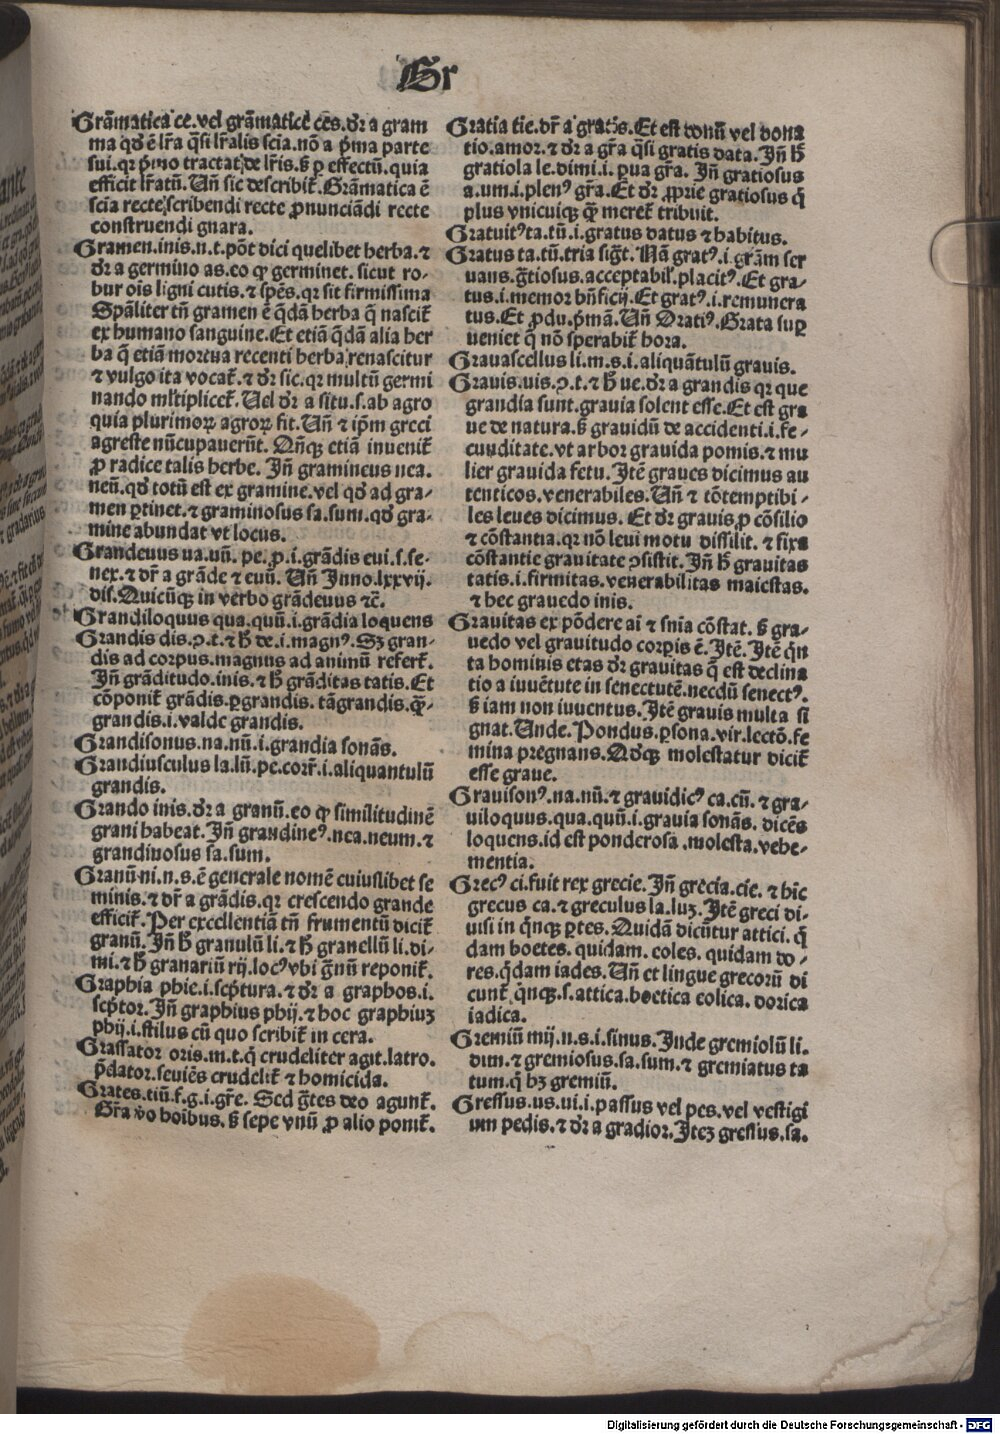 Gr
Grāmatica ce. vel grāmatice ces. dr̄ a gram
ma qd̄ ē lr̄a q̄si lr̄alis scīa. nō a p̄ma parte
sui. qr p̄mo tractat de lr̄is. s̄ p effectū. quia
efficit lr̄atū. Un̄ sic describit̄. Grāmatica ē
scīa recte scribendi recte ꝓnunciādi recte
construendi gnara.
Gramen. inis. n. t. pōt dici quelibet herba. ⁊
dr̄ a germino as. eo ꝙ germinet. sicut ro-
bur oīs ligni cutis. ⁊ spēs. qr sit firmissima
Spāliter tn̄ gramen ē q̄dā herba q̄ nascit̄
ex humano sanguine. Et etiā q̄dā alia her
ba q̄ etiā mortua recenti herba renascitur
⁊ vulgo ita vocat̄. ⁊ dr̄ sic. qr multū germi
nando ml̄tiplicet̄. Uel dr̄ a situ. s. ab agro
quia plurimoꝝ agroꝝ fit. Un̄ ⁊ ip̄m greci
agreste nūcupauerūt. An̄qꝫ etiā inuenit̄
ꝓ radice talis herbe. Jn̄ gramineus nea.
neū. qd̄ totū est ex gramine. vel qd̄ ad gra-
men ꝑtinet. ⁊ graminosus sa. sum. qd̄ gra-
mine abundat vt locus.
Grandeuus ua. uū. pe. ꝓ. i. grādis eui. s. se-
nex. ⁊ dr̄ a grāde ⁊ euū. Un̄ Inno. lxxvij.
dis. Quicūqꝫ in verbo grādeuus ⁊c̄.
Grandiloquus qua. quū. i. grādia loquens
Grandis dis. ɔ. t. ⁊ h̄ de. i. magn⁹. Sꝫ gran-
dis ad corpus. magnus ad animū refert̄.
Jn̄ grāditudo. inis. ⁊ h̄ grāditas tatis. Et
cōponit̄ grādis. ꝑgrandis. tāgrandis. q̄-
grandis. i. valde grandis.
Grandisonus. na. nū. i. grandia sonās.
Grandiusculus la. lū. pe. corr̄. i. aliquantulū
grandis.
Grando inis. dr̄ a granū. eo ꝙ similitudinē
grani habeat. Jn̄ grandine⁹. nea. neum. ⁊
grandinosus sa. sum.
Granū. ni. n. s. ē generale nomē cuiuslibet se
minis. ⁊ dr̄ a grādis. qr crescendo grande
efficit̄. Per excellentiā tn̄ frumentū dicit̄
granū. Jn̄ h̄ granulū li. ⁊ h̄ granellū li. di-
mi. ⁊ h̄ granariū rij. loc⁹ vbi ḡnū reponit̄.
Graphia phie. i. scp̄tura. ⁊ dr̄ a graphos. i.
scp̄tor. Jn̄ graphius phij. ⁊ hoc graphiuꝫ
phij. i. stilus cū quo scribit̄ in cera.
Grassator oris. m. t. q̄ crudeliter agit. latro.
p̄dator. seuiēs crudelit̄ ⁊ homicida.
Grates. tiū. f. g. i. gr̄e. Sed g̅tes deo agunt̄.
Gr̄a v̊o hoībus. s̄ sepe vnū ꝓ alio ponit̄.
Gratia tie. dr̄ a gratis. Et est donū vel dona
tio. amor. ⁊ dr̄ a gr̄a q̄si gratis data. Jn̄ h̄
gratiola le. dimi. i. ꝑua gr̄a. Jn̄ gratiosus
a. um. i. plen⁹ gr̄a. Et dr̄ ꝓprie gratiosus q̄
plus vnicuiqꝫ q̄ meret̄ tribuit.
Gratuit⁹ ta. tū. i. gratus datus ⁊ habitus.
Gratus ta. tū. tria sig̅t. Nā grat⁹. i. grām ser
uans. g̅tiosus. acceptabil̄. placit⁹. Et gra-
tus. i. memor bn̄ficij. Et grat⁹. i. remunera
tus. Et ꝓdu. p̄mā. Un̄ Orati⁹. Grata suꝑ
ueniet q̄ nō sperabit̄ hora.
Grauascellus li. m. s. i. aliquātulū grauis.
Grauis. uis. ɔ. t. ⁊ h̄ ue. dr̄ a grandis qr que
grandia sunt. grauia solent esse. Et est gra
ue de natura. s̄ grauidū de accidenti. i. fe-
cunditate. vt arbor grauida pomis. ⁊ mu
lier grauida fetu. Jtē graues dicimus au
tenticos. venerabiles. Un̄ ⁊ cōtemptibi-
les leues dicimus. Et dr̄ grauis ꝓ cōsilio
⁊ cōstantia. qr nō leui motu dissilit. ⁊ fixa
cōstantie grauitate ɔsistit. Jn̄ h̄ grauitas
tatis. i. firmitas. venerabilitas maiestas.
⁊ hec grauedo inis.
Grauitas ex pōdere ai ⁊ snīa cōstat. s̄ gra-
uedo vel grauitudo corꝑis ē. Jtē. Jtē q̄n
ta hominis etas dr̄ grauitas q̄ est declina
tio a iuuētute in senectutē. necdū senect⁹.
s̄ iam non iuuentus. Jtē grauis multa si
gnat. Unde. Pondus. ꝑsona. vir. lectō. fe
mina pregnans. Adqꝫ molestatur dicit̄
esse graue.
Grauison⁹. na. nū. ⁊ grauidic⁹ ca. cū. ⁊ gra-
uiloquus. qua. quū. i. grauia sonās. dicēs
loquens. id est ponderosa. molesta. vehe-
mentia.
Grec⁹ ci. fuit rex grecie. Jn̄ grecia. cie. ⁊ hīc
grecus ca. ⁊ greculus la. luꝫ. Jtē greci di-
uisi in q̄nqꝫ ꝑtes. Quidā dicūtur attici. q̄
dam boetes. quidam. eoles. quidam do-
res. q̄dam iades. Un̄ et lingue grecorū di
cunt̄ q̄nqꝫ. s. attica. boetica eolica. dorica
iadica.
Gremiū mij. n. s. i. sinus. Jnde gremiolū li.
dim. ⁊ gremiosus. sa. sum. ⁊ gremiatus ta
tum. q̄ hꝫ gremiū.
Gressus. us. ui. i. passus vel pes. vel vestigi
um pedis. ⁊ dr̄ a gradior. Jteꝫ gressus. sa.
Digitalisierung gefördert durch die Deutsche Forschungsgemeinschaft - DFG